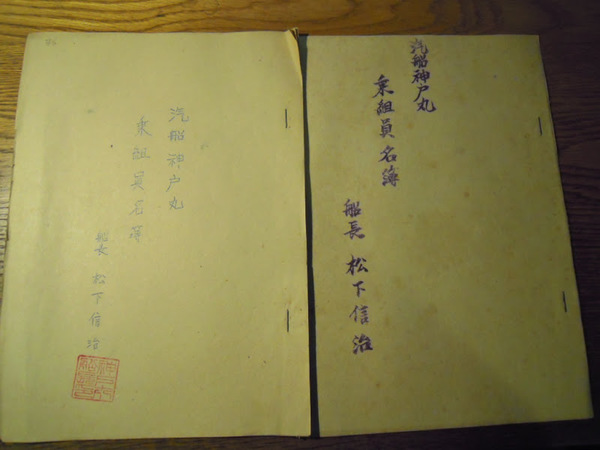 汽船神戸丸
乗組員名簿
船長 松下信治
汽船神戸丸
乗組員名簿
船長 松下信治